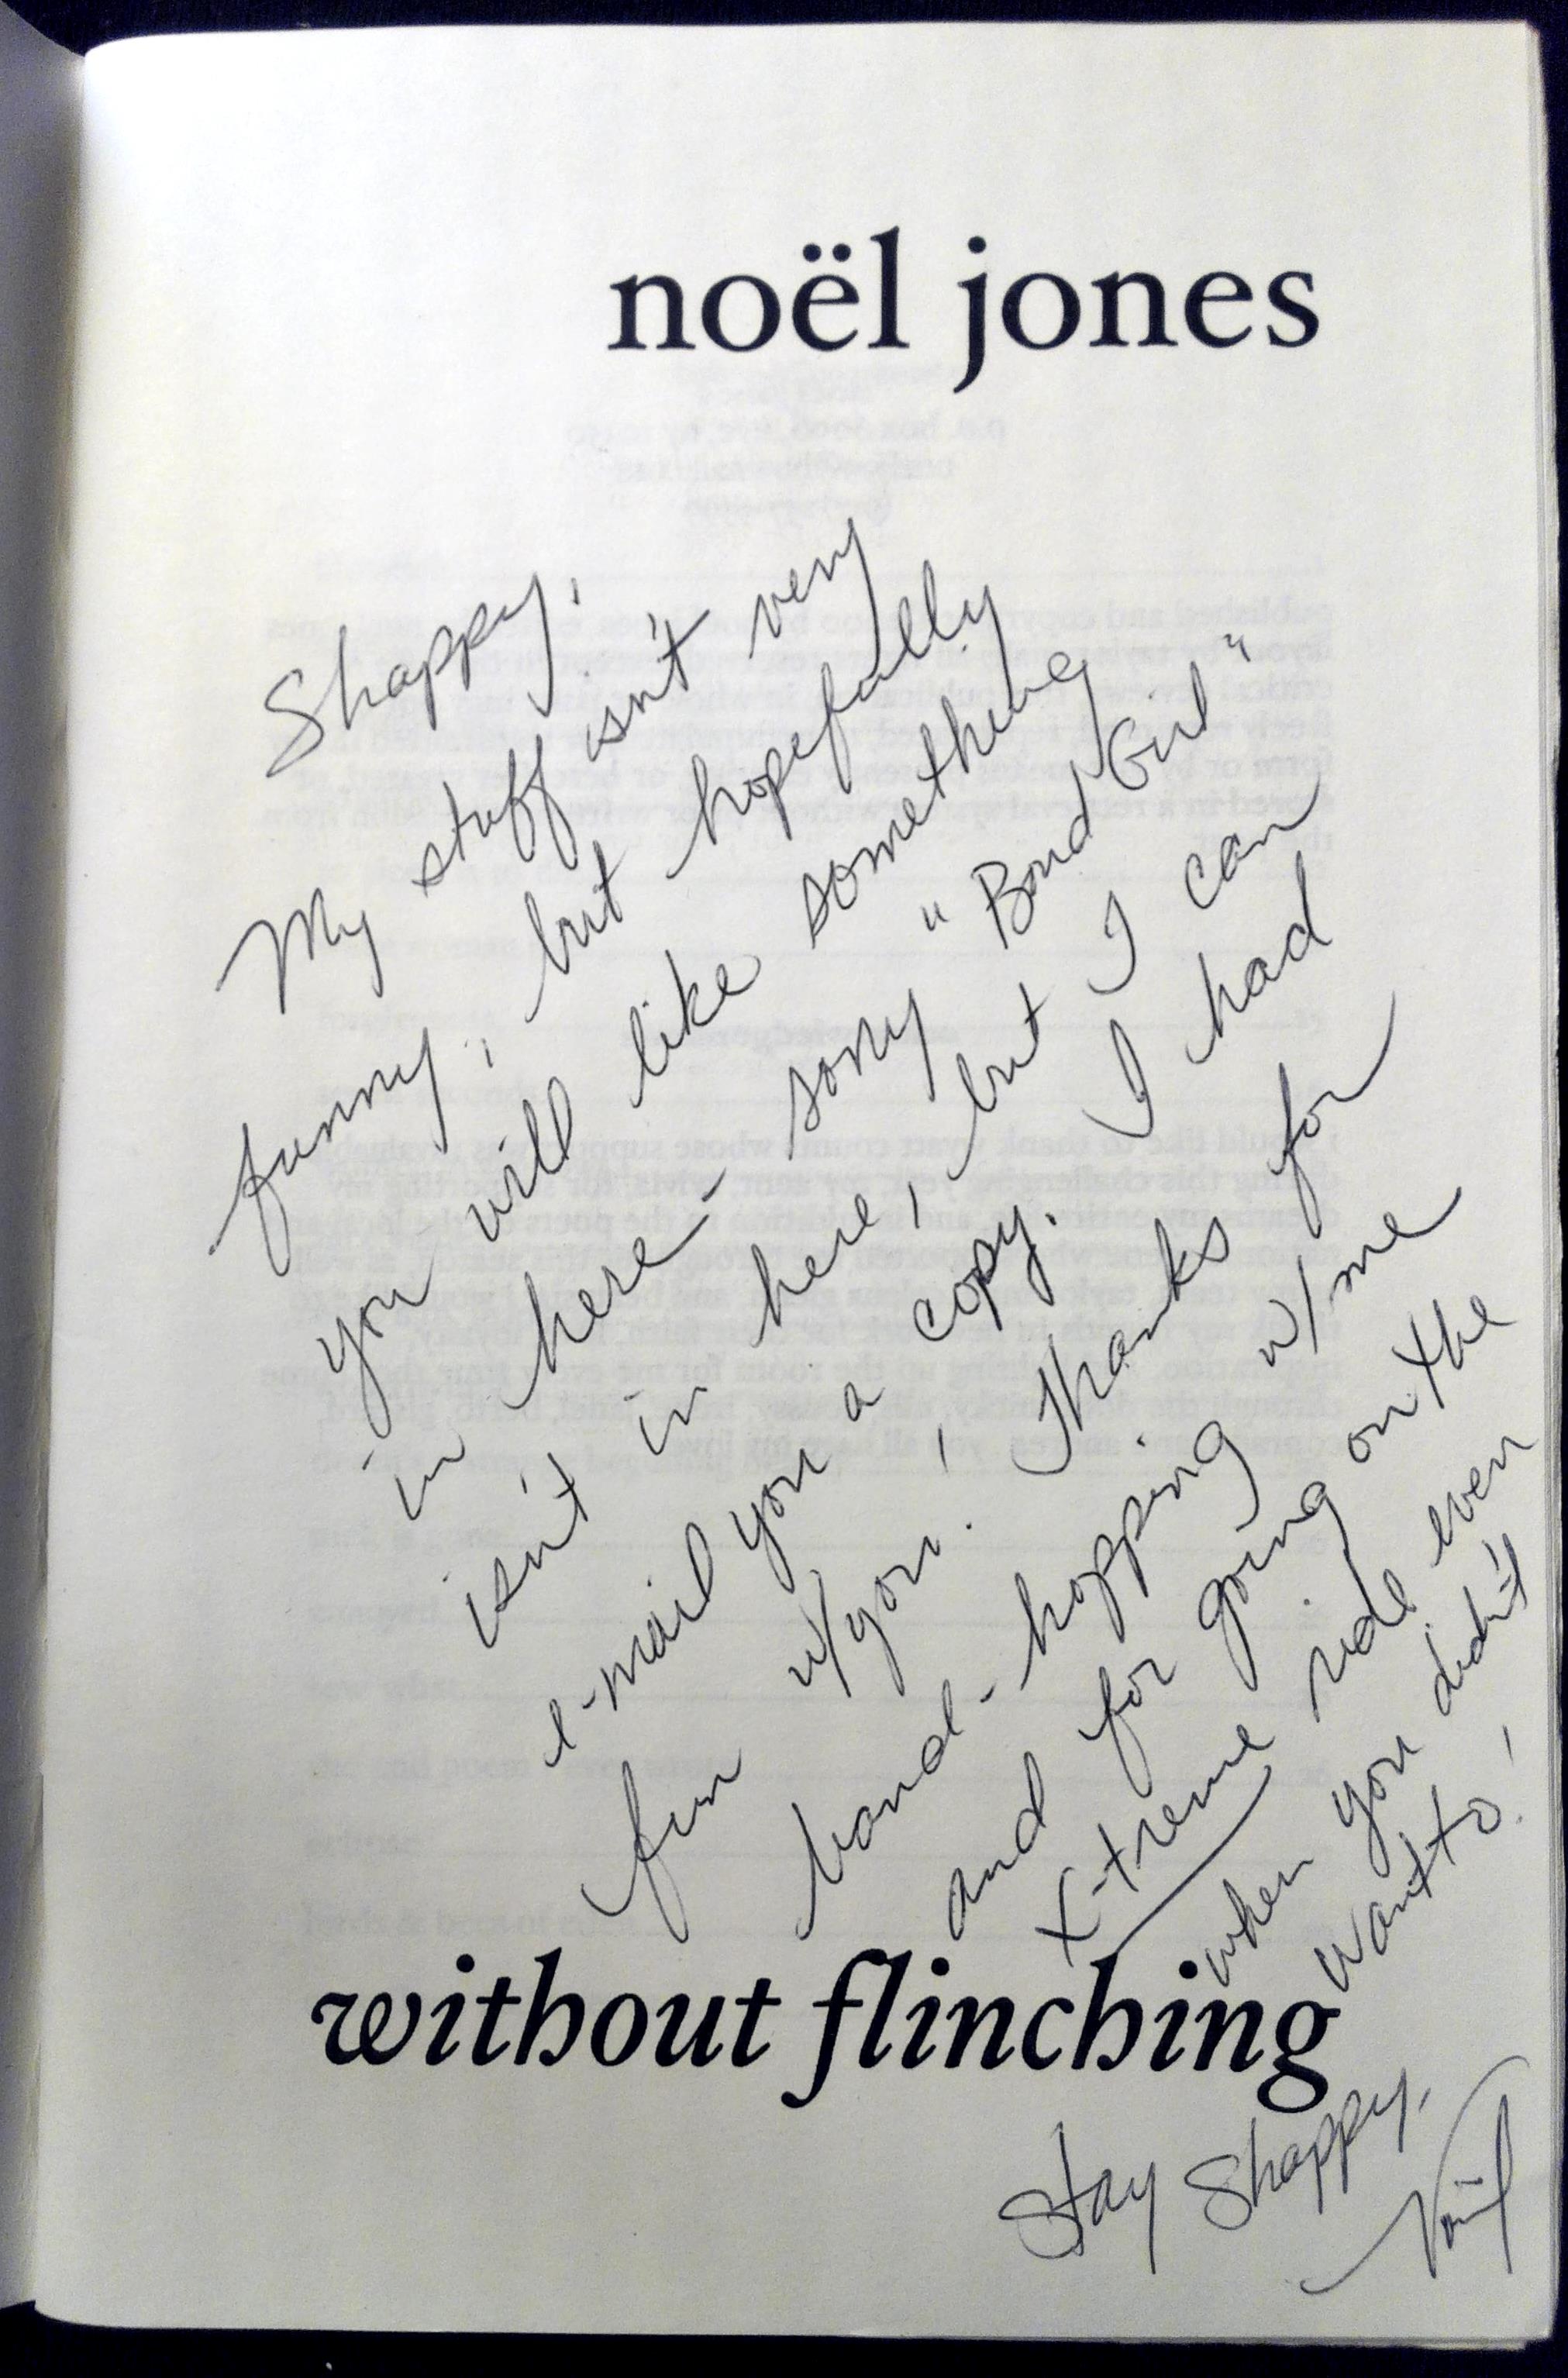 noël jones
Shappy,
My stuff isn't very
funny, but hopefully
you will like something
in here – sorry "Bond Girl"
isn't in here, but I can
e-mail you a copy. I had
fun w/you! Thanks for
band-hopping w/me
and for going on the
X-treme ride even
when you didn't
want to!
without flinching
Stay Shappy,
Noël